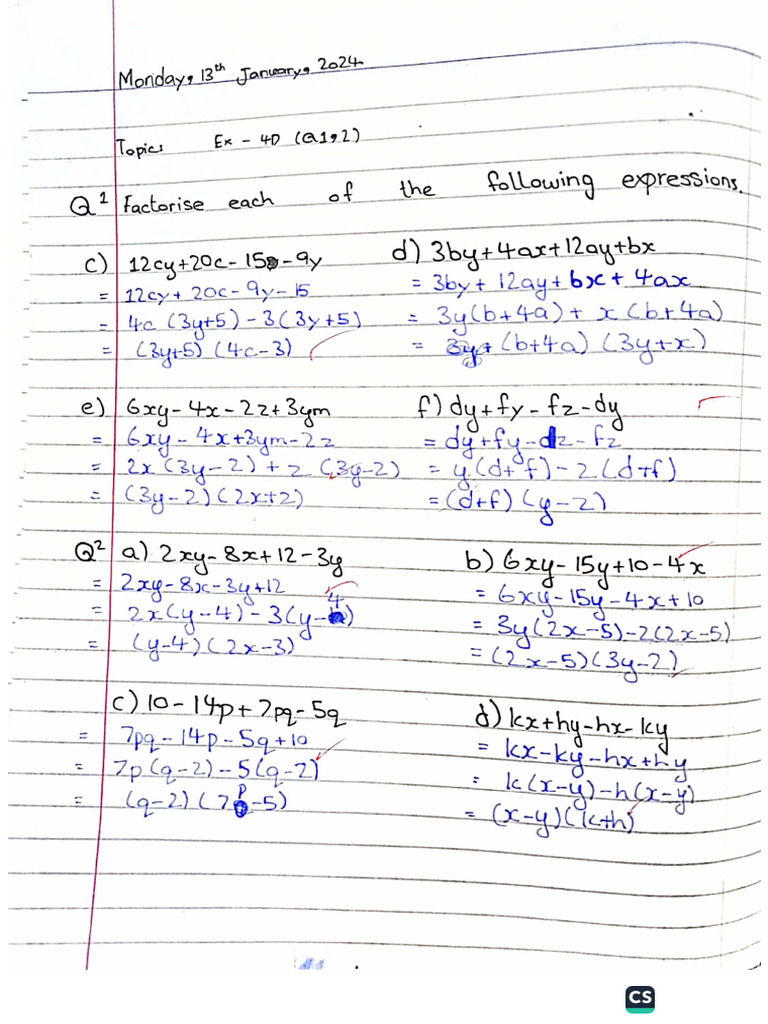 Monday, 13th January, 2024
Topic: Ex - 4D (Q1,2)
Q1 Factorise each of the following expressions.
c) 12cy+20c-15-9y
= 12cy+20c-9y-15
= 4c(3y+5)-3(3y+5)
= (3y+5)(4c-3)
d) 3by+4ax+12ay+bx
= 3by+12ay+bx+4ax
= 3y(b+4a)+x(b+4a)
= (b+4a)(3y+x)
e) 6xy-4x-2z+3ym
= 6xy-4x+3ym-2z
= 2x(3y-2)+z(3y-2)
= (3y-2)(2x+2)
f) dy+fy-fz-dy
= dy+fy-dz-fz
= y(d+f)-2(d+f)
= (d+f)(y-2)
Q2 a) 2xy-8x+12-3y
= 2xy-8x-3y+12
= 2x(y-4)-3(y-4)
= (y-4)(2x-3)
b) 6xy-15y+10-4x
= 6xy-15y-4x+10
= 3y(2x-5)-2(2x-5)
= (2x-5)(3y-2)
c) 10-14p+7pq-5q
= 7pq-14p-5q+10
= 7p(q-2)-5(q-2)
= (q-2)(7p-5)
d) kx+hy-hx-ky
= kx-ky-hx+hy
= k(x-y)-h(x-y)
= (x-y)(k+h)
CS